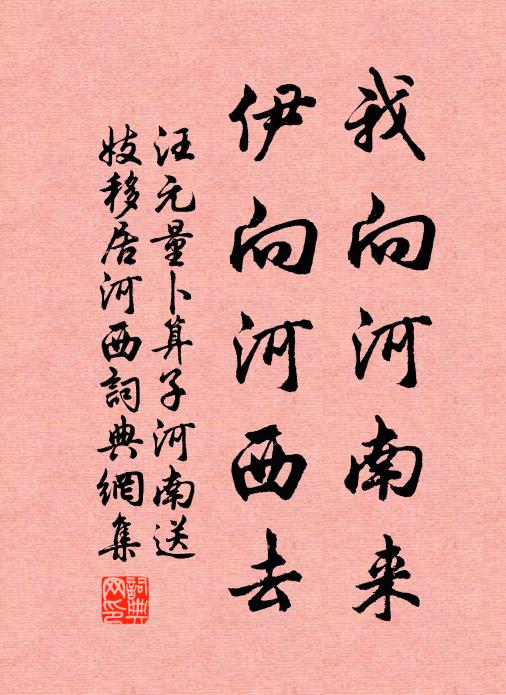 我向河南来
伊向河西去
汪元量卜算子河南送
妓移居河西詞典網集
詞典网印